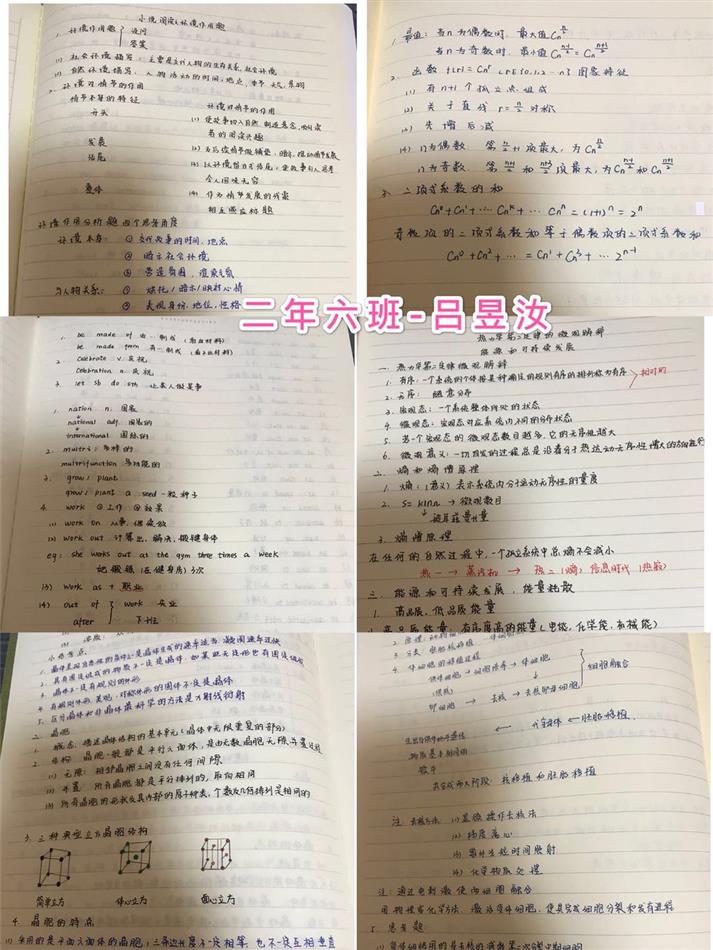 小说阅读环境作用题
1. 环境作用题 { 设问
答案
(1) 社会环境描写：主要是交代人物的生存关系,社会环境
(2) 自然环境描写：人物活动的时间,地点,季节,天气,景物
2. 环境对情节的作用
情节本等的特征 环境对情节的作用
开头 (1) 使故事切入自然
者的阅读兴趣
发展
结尾
令人回味无穷
整体 (4) 作为情节发展的线索
相互感应,标题
环境作用分析题四个思考角度
环境本身：① 交代故事的时间,地点
② 暗示社会环境
③ 营造氛围,渲染气氛
与人物关系：① 烘托/暗示/映衬心情
② 表现身份,地位,性格
1. 最值：当n为偶数时,最大值Cn^(n/2)
当n为奇数时,最小值Cn^((n-1)/2) = Cn^((n+1)/2)
2. 函数 f(r)=Cn^r (r∈{0,1,2…n}) 图象特征
(1) 有n+1个孤立点组成
(2) 关于直线 r=n/2 对称
(3) 先增后减
(4) n为偶数 第n/2+1项最大,为Cn^(n/2)
n为奇数 第(n+1)/2和(n+3)/2项最大,为Cn^((n-1)/2)和Cn^((n+1)/2)
3. 二项式系数的和
Cn^0+Cn^1+…Cn^k+…Cn^n=(1+1)^n=2^n
奇数项的二项式系数和等于偶数项的二项式系数和
Cn^0+Cn^2+…=Cn^1+Cn^3+…2^(n-1)
二年六班-吕昱汝
1. be made of 由…制成 (看出材料)
be made from 由…制成 (看不出材料)
2. Celebrate v.庆祝
Celebration n.庆祝
3. let sb do sth 让某人做某事
1. nation n. 国家
national adj. 国家的
international 国际的
2. multi：多样的
multifunction 多功能的
3. grow / plant
grow / plant a seed 一粒种子
4. work ①工作 ②效果
(1) work on 从事,
(2) work out 计算出,解决,锻健身体
eg：she works out at the gym three times a week
她锻炼(在健身房)3次
(3) work as + 职业
(4) out of } work 失业
after 下班
热力学第二定律的微观解释
能源和可持续发展
一. 热力学第二定律微观解释
1. 有序：一个系统的个体按某种确定的规则有序的排列称为有序 > 相对的
2. 无序：随意分布
3. 宏观态：一个系统整体所处的状态
4. 微观态：宏观态对应系统内不同的分布状态
5. 某一个宏观态的微观态数目越多,它的无序性越大
6. 微观意义：一切自发的过程总是沿着分子热运动无序性增大的方向进行
二. 熵和熵增原理
1. 熵：(意义) 表示系统内分子运动无序性的量度
2. S=klnΩ → 微观数目
→ 玻耳兹曼常量
3. 熵增原理
在任何的自然过程中,一个孤立系统中总熵不会减小
热一 → 蒸汽机 → 热二(熵) 信息时代(热寂)
三. 能源和可持续发展,能量耗散
1. 高品质,低品质能量
5. 区分晶体和非晶体最科学的方法是X射线衍射
二. 晶胞
1. 概念：描述晶体结构的基本单元(晶体中无限重复的部分)
2. 结构：晶胞一般都是平行六面体,是由无数晶胞无隙并置
(1) 无隙：相邻晶胞之间没有任何间隙
(2) 并置：所有晶胞都是平行排列的,取向相同
(3) 所有晶胞的形状及其内部的原子种类,个数及几何排列是相同的
3. 三种典型立方晶胞结构
简单立方 体心立方 面心立方
4. 晶胞的特点
4. 体细胞的核植过程
供体细胞 → 细胞培养 → 体细胞
卵细胞 → 去核 → 去核卵母细胞
} 细胞融合
← 代孕母体 ← 胚胎移植
共分成两大阶段：核移植和胚胎移植
注 去核方法 (1) 显微操作去核法
(2) 梯度离心
(3) 紫外光短时间照射
(4) 化学物质处理
注：通过电刺激使两细胞融合
用物理或化学方法,激活受体细胞,使其完成细胞分裂和发育进程